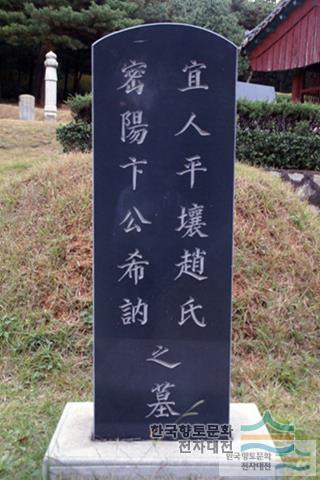 宜人平壤趙氏
密陽卞公希訥
之墓
한국향토문화
전자대전
한국향토문화
전자대전